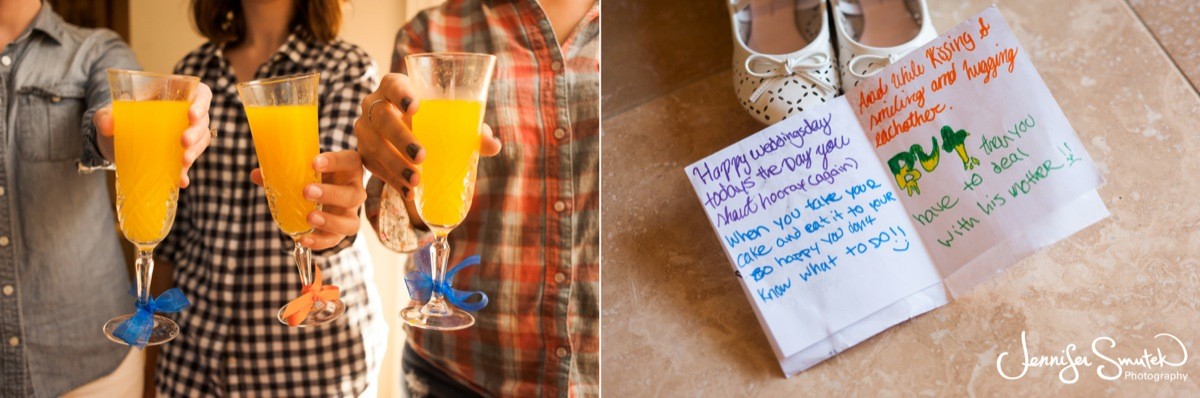 Happy weddingsday
todays the Day you
shout hooray (again)
when you take your
cake and eat it to your
so happy you don't
know what to DO!!
And While Kissing &
smiling and hugging
eachother.
BUT then you
have to deal
with his mother!!
Jennifer Smutek
Photography